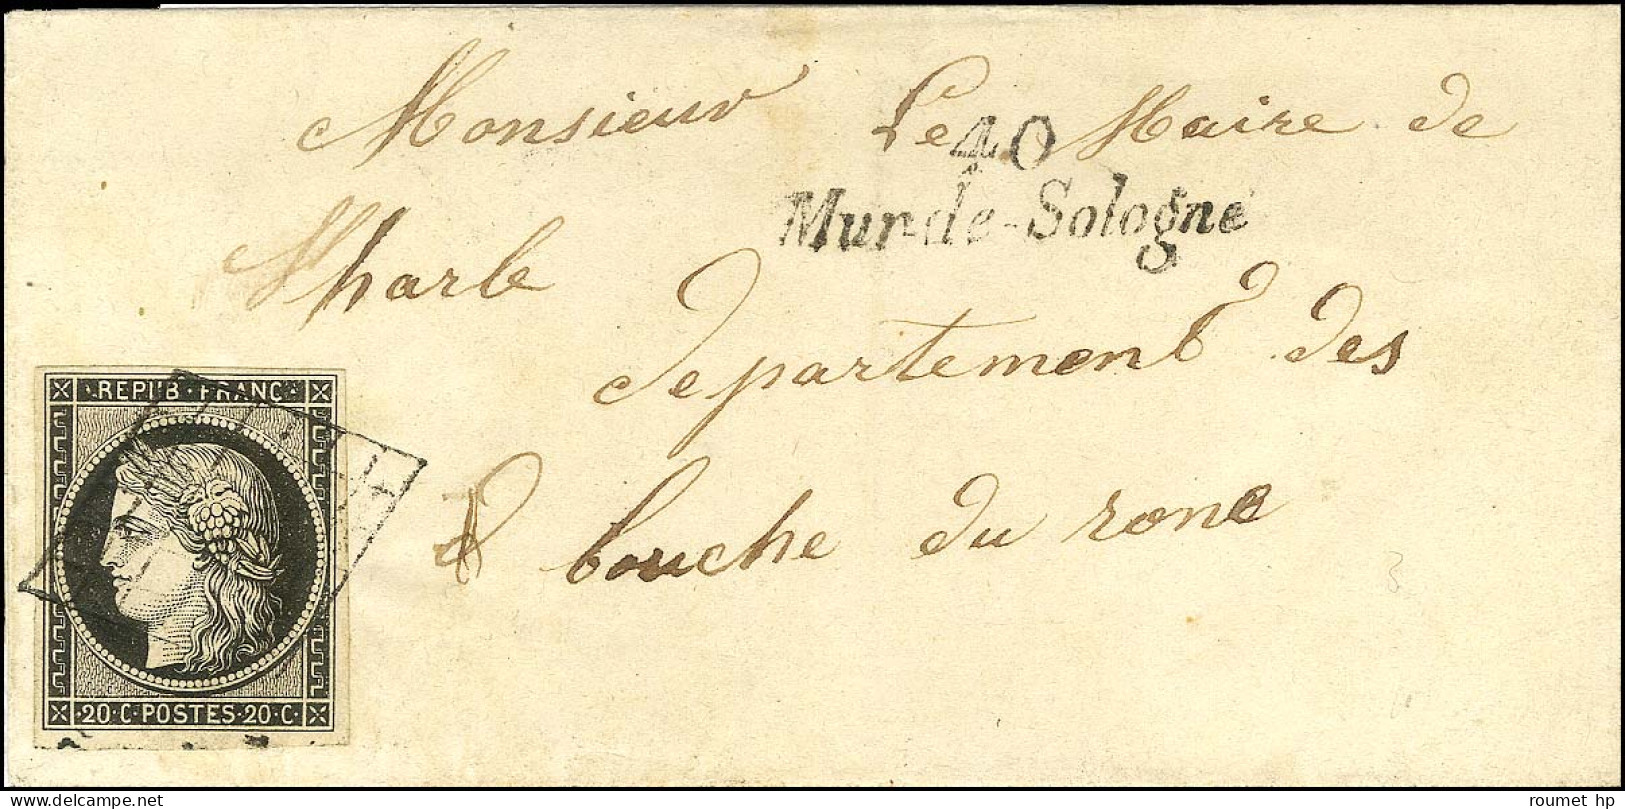 Monsieur Le Maire de
40
Mur-de-Sologne
Sharle
departement des
bouche du rone
REPUB · FRANC
20 · C · POSTES · 20 · C
roumet hp